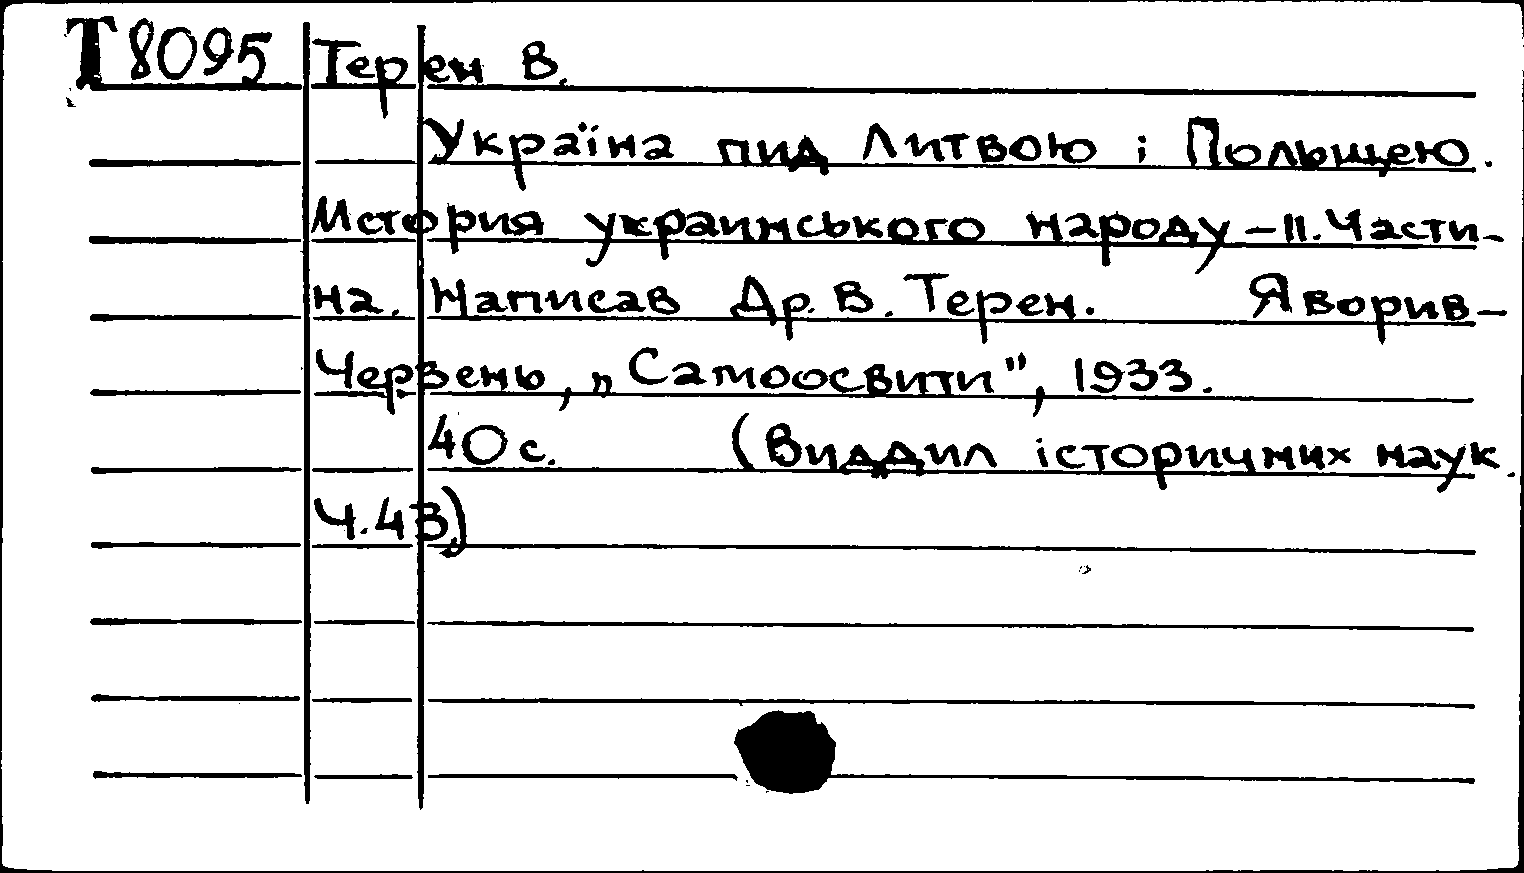 Т8095 Терен В.
Україна пид Литвою і Польщею.
История украинського народу – II. Части-
на. Написав Др. В. Терен. Яворив –
Червень, „Самоосвити", 1933.
40 с. (Виддил історичних наук.
Ч.43)